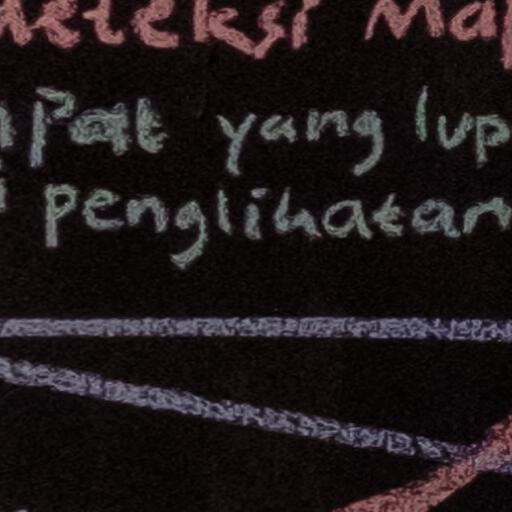 deteksi Mal
Pat yang lup
penglihatan